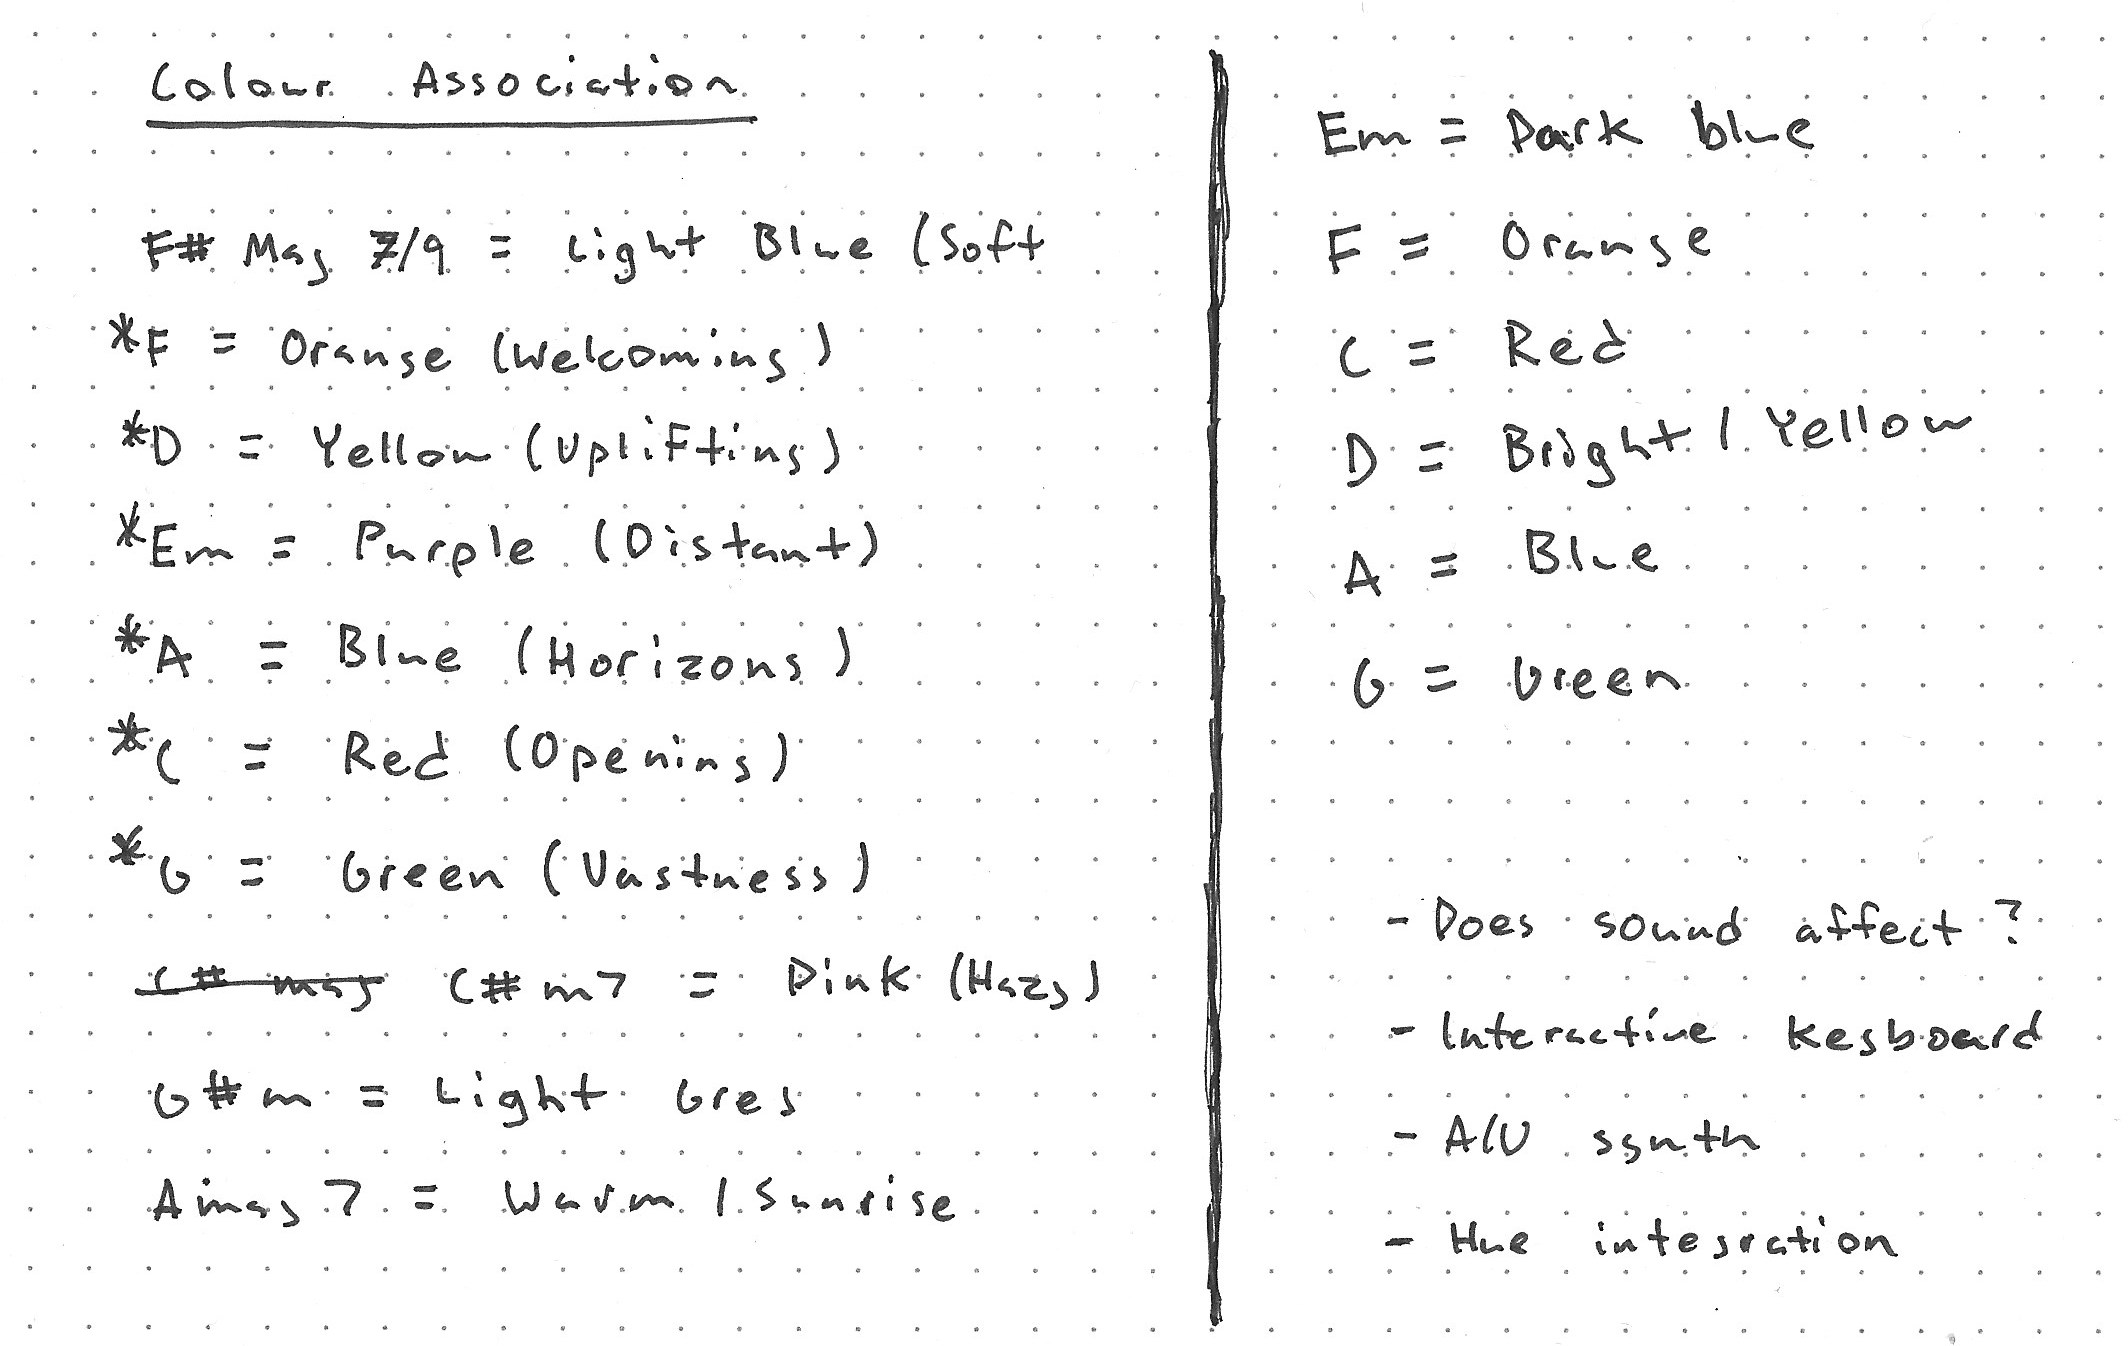 Colour Association
F# Maj 7/9 = Light Blue (Soft
*F = Orange (Welcoming)
*D = Yellow (Uplifting)
*Em = Purple (Distant)
*A = Blue (Horizons)
*C = Red (Opening)
*G = Green (Vastness)
C# maj C#m7 = Pink (Hazy)
G#m = Light Grey
Amaj7 = Warm / Sunrise
Em = Dark blue
F = Orange
C = Red
D = Bright / Yellow
A = Blue
G = Green
- Does sound affect?
- Interactive keyboard
- A/V synth
- Hue integration